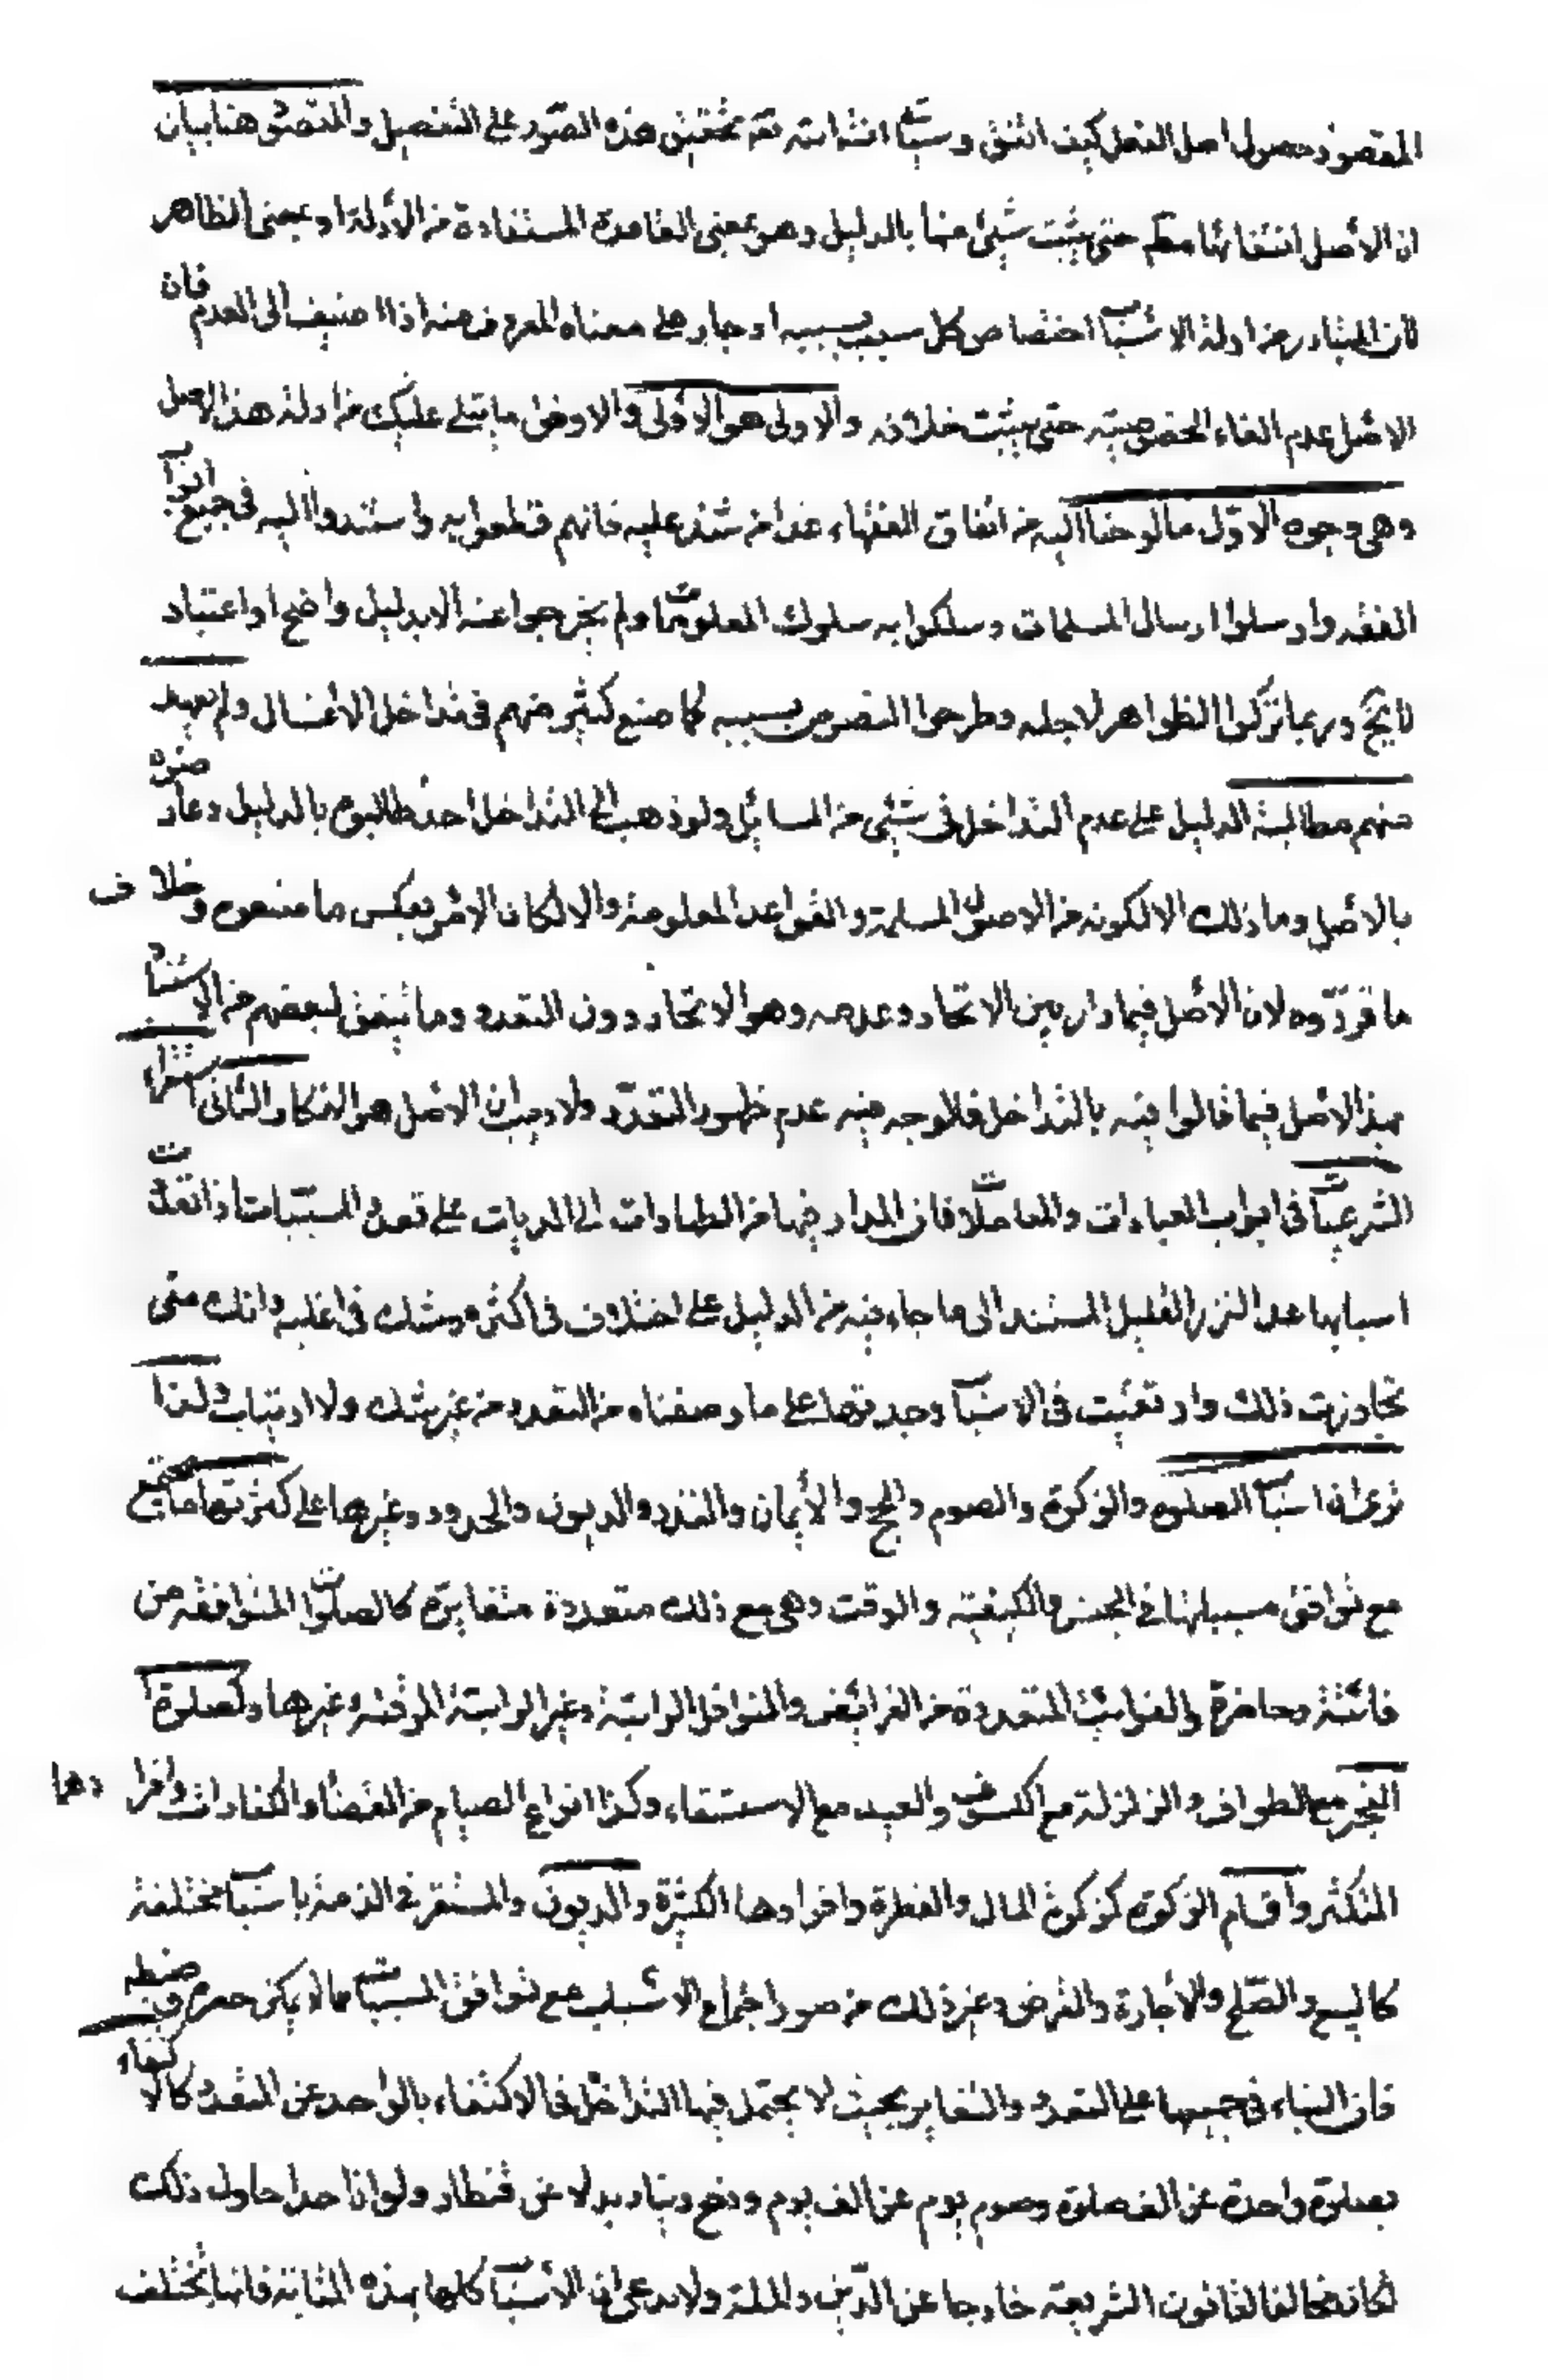 المقصود حصول اصل الفعل كيف اتفق وسيأتى انشاء الله تعه تحقيق هذه الصور على التفصيل والمقصود هنا بيان
ان الأصل انتفائها مطم حتى يثبت شئ منها بالدليل وهو بمعنى القاعدة المستفادة من الأدلة او بمعنى الظاهر
فان المتبادر من ادلة الاسباب اختصاص كل سبب بمسببه او جار على معناه المعروف منه اذا اضيف الى العدم فان
الاصل عدم الغاء الخصوصية حتى يثبت خلافه والاولى هو الاولى والاوفق ما يتلى عليك من ادلة هذا الاصل
وهى وجوه الاول ما لوحنا اليه من اتفاق الفقهاء عدا من شذ عليه فانهم قطعوا به واستندوا اليه فى جميع ابواب
الفقه وارسلوا ارسال المسلمات وسلكوا به سلوك المعلومات ولم يخرجوا عنه الا بدليل واضح او اعتبار
لايح وربما تركوا الظواهر لاجله وطرحوا النصوص بسببه كما صنع كثير منهم فى تداخل الاغسال ولم يعهد
منهم مطالبة الدليل على عدم التداخل فى شئ من المسائل ولو ذهب الى التداخل احد طالبوه بالدليل وعارضوه
بالاصل وما ذلك الا لكونه من الاصول المسلمة والقواعد المعلومة والا لكان الامر بعكس ما صنعوه وخلاف
ما قرروه لان الاصل فيما دار بين الاتحاد وعدمه وهو الاتحاد دون التعدد وما يتفق لبعضهم من الاستناد
بهذا الاصل فيما قالوا فيه بالتداخل فلا وجه فيه عدم ظهور التعدد ولا ريب ان الاصل هو التكار الثانى استقراء
الشرعيات فى ابواب العبادات والمعاملات فان المدار فيها من الطهارات الى الديات على تعدد المسببات اذا تعددت
اسبابها عدا النزر القليل المستند الى ما جاء فيه من الدليل على اختلاف فى اكثره وشك فى اغلبه وانك متى
تجاوزت ذلك وارتقيت فى الاسباب وجدتها على ما وصفناه من التعدد من غير شك ولا ارتياب ولهذا
ترى ان اسباب الصلوة والزكوة والصوم والحج والأيمان والنذر والديون والحدود وغيرها على كثرتها ما يجتمع
مع توافق مسبباتها فى الجنس والكيفية والوقت وهى مع ذلك متعددة متغايرة كالصلوات المتوافقة من
فائتة وحاضرة والفوايت المتعددة من الفرائض والنوافل الراتبة وغير الراتبة الموقتة وغيرها وكصلوة
الفجر مع الطواف والزلزلة مع الكسوف والعيد مع الاستسقاء وكذا انواع الصيام من القضاء والكفارات وافرادها
المتكثر واقسام الزكوة كزكوة المال والفطرة وافرادها الكثيرة والديون والمستقر فى الذمة باسباب مختلفة
كالبيع والصلح والأجارة والقرض وغير ذلك من صور اجتماع الاسباب مع توافق المسببات مما لا يمكن حصره وضبطه
فان البناء فى جميعها على التعدد والتغاير بحيث لا يحتمل فيها التداخل والاكتفاء بالواحد عن المتعدد كالاكتفاء
بصلوة واحدة عن الف صلوة وصوم يوم عن الف يوم ودفع دينار بدلا عن قنطار ولو ان احدا حاول ذلك
لكان مخالفا لقانون الشريعة خارجا عن الدين والملة ولا ندعى ان الأسباب كلها بهذه المثابة فانها تختلف